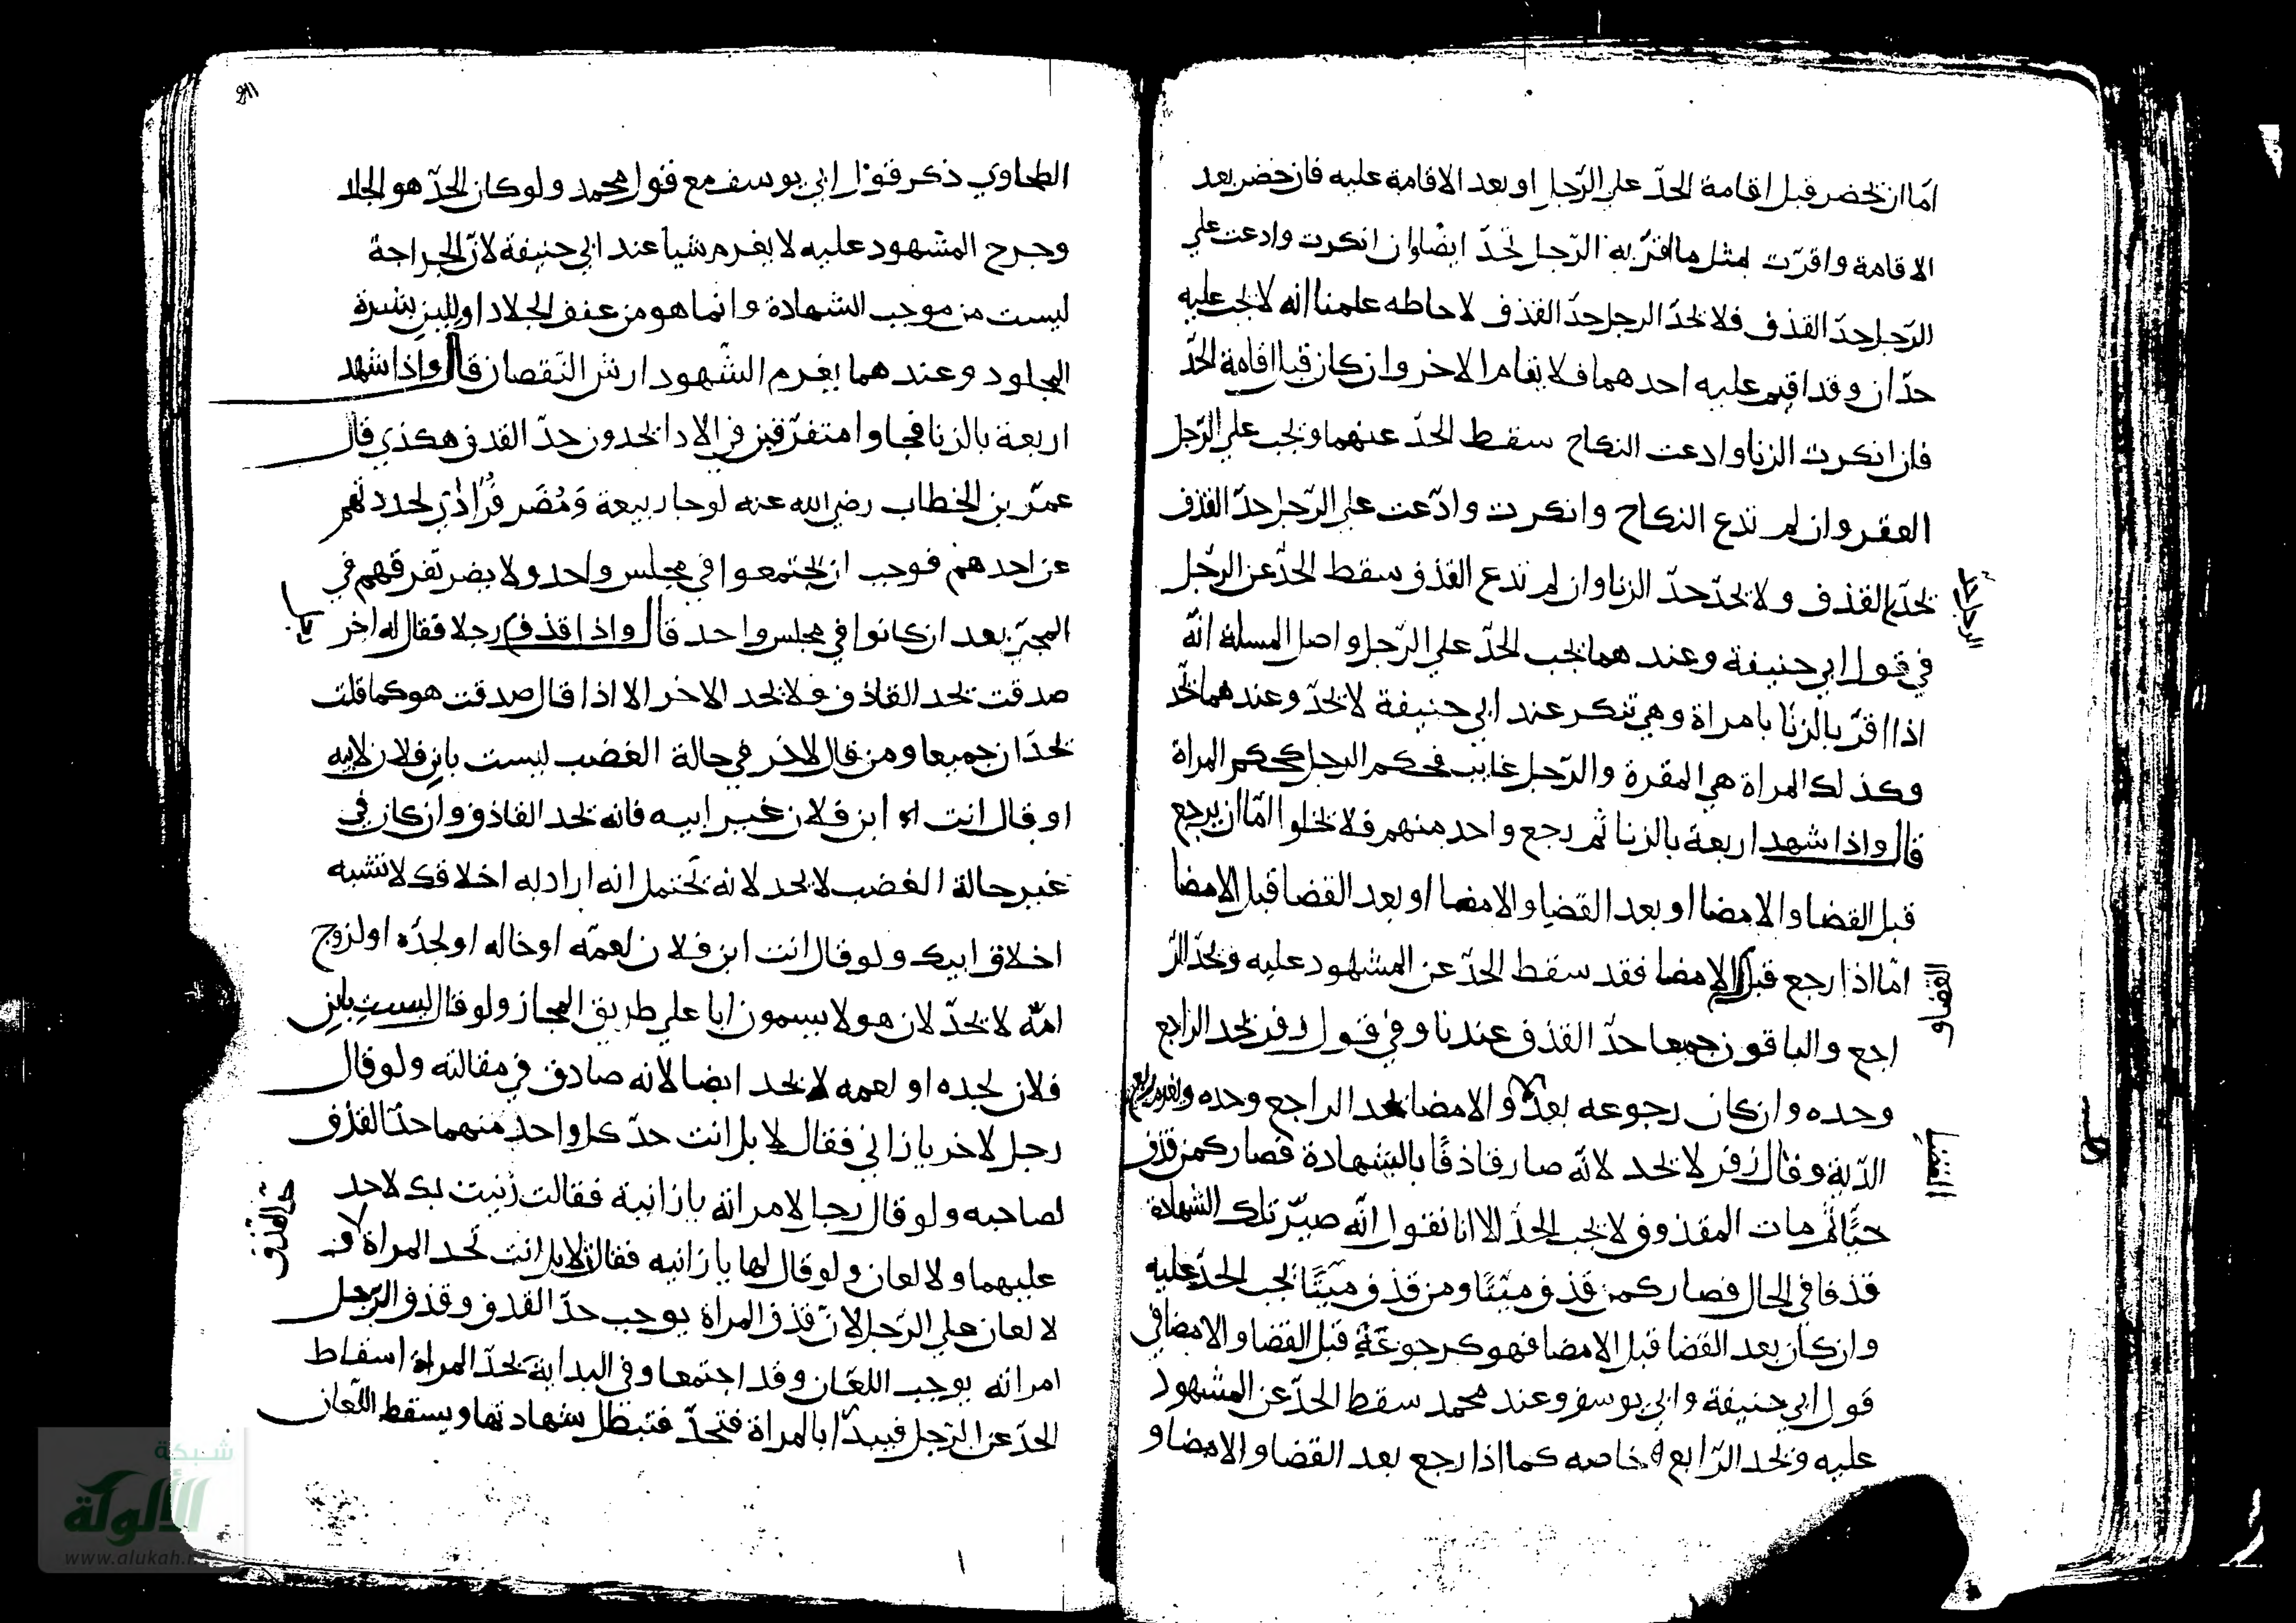 اما ان تحضر قبل اقامة الحدّ علي الرّجل او بعد الاقامة عليه فان حضر بعد
الاقامة واقرّت بمثل ما اقرّ به الرّجل تحدّ ايضاوان انكرت وادعت علي
الرّجل حدّ القذف فلا يحدّ الرجل حدّ القذف لاحاطه علمنا انه لا يجب عليه
حدّان وقد اقيم عليه احدهما فلا يقام الاخر وان كان قبل اقامة الحدّ
فان انكرت الزنا وادعت النكاح سقط الحدّ عنهما ويجب علي الرّجل
العقر وان لم تدع النكاح وانكرت وادّعت علي الرّجل حدّ القذف
يحدّ القذف ولا يحدّ حدّ الزنا وان لم تدع القذف سقط الحدّ عن الرّجل
في قول ابي حنيفة وعندهما يجب الحدّ علي الرّجل واصل المسلة انّه
اذا اقرّ بالزنا بامراة وهي تنكر عند ابي حنيفة لا يحدّ وعندهما يحدّ
وكذلك المراة هي المقرة والرّجل غايب فحكم الرجل كحكم المراة
قال واذا شهد اربعة بالزنا ثم رجع واحد منهم فلا يخلوا امّا ان يرجع
قبل القضا والامضا او بعد القضا والامضا او بعد القضا قبل الامضا
امّا اذا رجع قبل الامضا فقد سقط الحدّ عن المشهود عليه ويحدّ الر
القضا و
اجع والباقون جميعا حدّ القذف عندنا وفي قول زفر يحد الراجع
وحده وان كان رجوعه بعد والامضا يحد الراجع وحده ويغرم ربع
القضا
الدّية وقال زفر لا يحد لانّه صار قاذفًا بالشهادة فصار كمن قذف
حيًّا ثم مات المقذوف لا يجب الحدّ الا انا نقول انّه صيّر تلك الشهادة
قذفا في الحال فصار كمن قذف ميّتًا ومن قذف ميّتًا يجب الحدّ عليه
وان كان بعد القضا قبل الامضا فهو كرجوعه قبل القضا والامضا في
قول ابي حنيفة وابي يوسف وعند محمد سقط الحدّ عن المشهود
عليه ويحد الرّاجع خاصه كما اذا رجع بعد القضا والامضا و
الطحاوي ذكر قول ابي يوسف مع قول محمد ولو كان الحدّ هو الجلد
وجرح المشهود عليه لا يغرم شيا عند ابي حنيفة لانّ الجراحة
ليست من موجب الشهادة وانما هو من عنف الجلاد او للين بشرة
المجلود وعندهما يغرم الشّهود ارش النّقصان قال واذا شهد
اربعة بالزنا فجاوا متفرّقين في الادا يحدون حدّ القذف هكذي قال
عمر بن الخطاب رضي الله عنه لو جا ربيعة ومُضَر فُرَاذي لحددتهم
عن احدهم فوجب ان يجتمعوا في مجلس واحد ولا يضر تفرقهم في
المجيّ بعد ان كانوا في مجلس واحد قال واذا قذف رجلا فقال له اخر
صدقت يحد القاذف ولا يحد الاخر الا اذا قال صدقت هو كما قلت
يحدّان جميعا ومن قال لاخر في حالة الغضب ليست بابن فلان لابيه
او قال انت ابن فلان غير ابيه فانه يحد القاذف وان كان في
غير حالة الغضب لا يحد لانه يحتمل انه اراد به اخلاقك لا تشبه
اخلاق ابيك ولو قال انت ابن فلان لعمّه او خاله او لجدّه او لزوج
امّه لا يحدّ لان هولا يسمون ابا علي طريق المجاز ولو قال ليست بابن
فلان لجده او لعمه لا يحد ايضا لانه صادق في مقالته ولو قال
رجل لاخر يا زاني فقال لا بل انت حدّ كل واحد منهما حدّ القذف
لصاحبه ولو قال رجل لامراته يا زانية فقالت زنيت بك لا حد
عليهما ولا لعان ولو قال لها يا زانيه فقالت لا بل انت تحد المراة
حد القذف
لا لعان علي الرّجل لانّ قذف المراة يوجب حدّ القذف وقذف الرّجل
امراته يوجب اللعان وقد اجتمعا وفي البداية بحدّ المراة اسقاط
الحدّ عن الرّجل فيبدّا بالمراة فتحدّ فتبطل شهادتها ويسقط اللّعان
شبكة
الألوكة